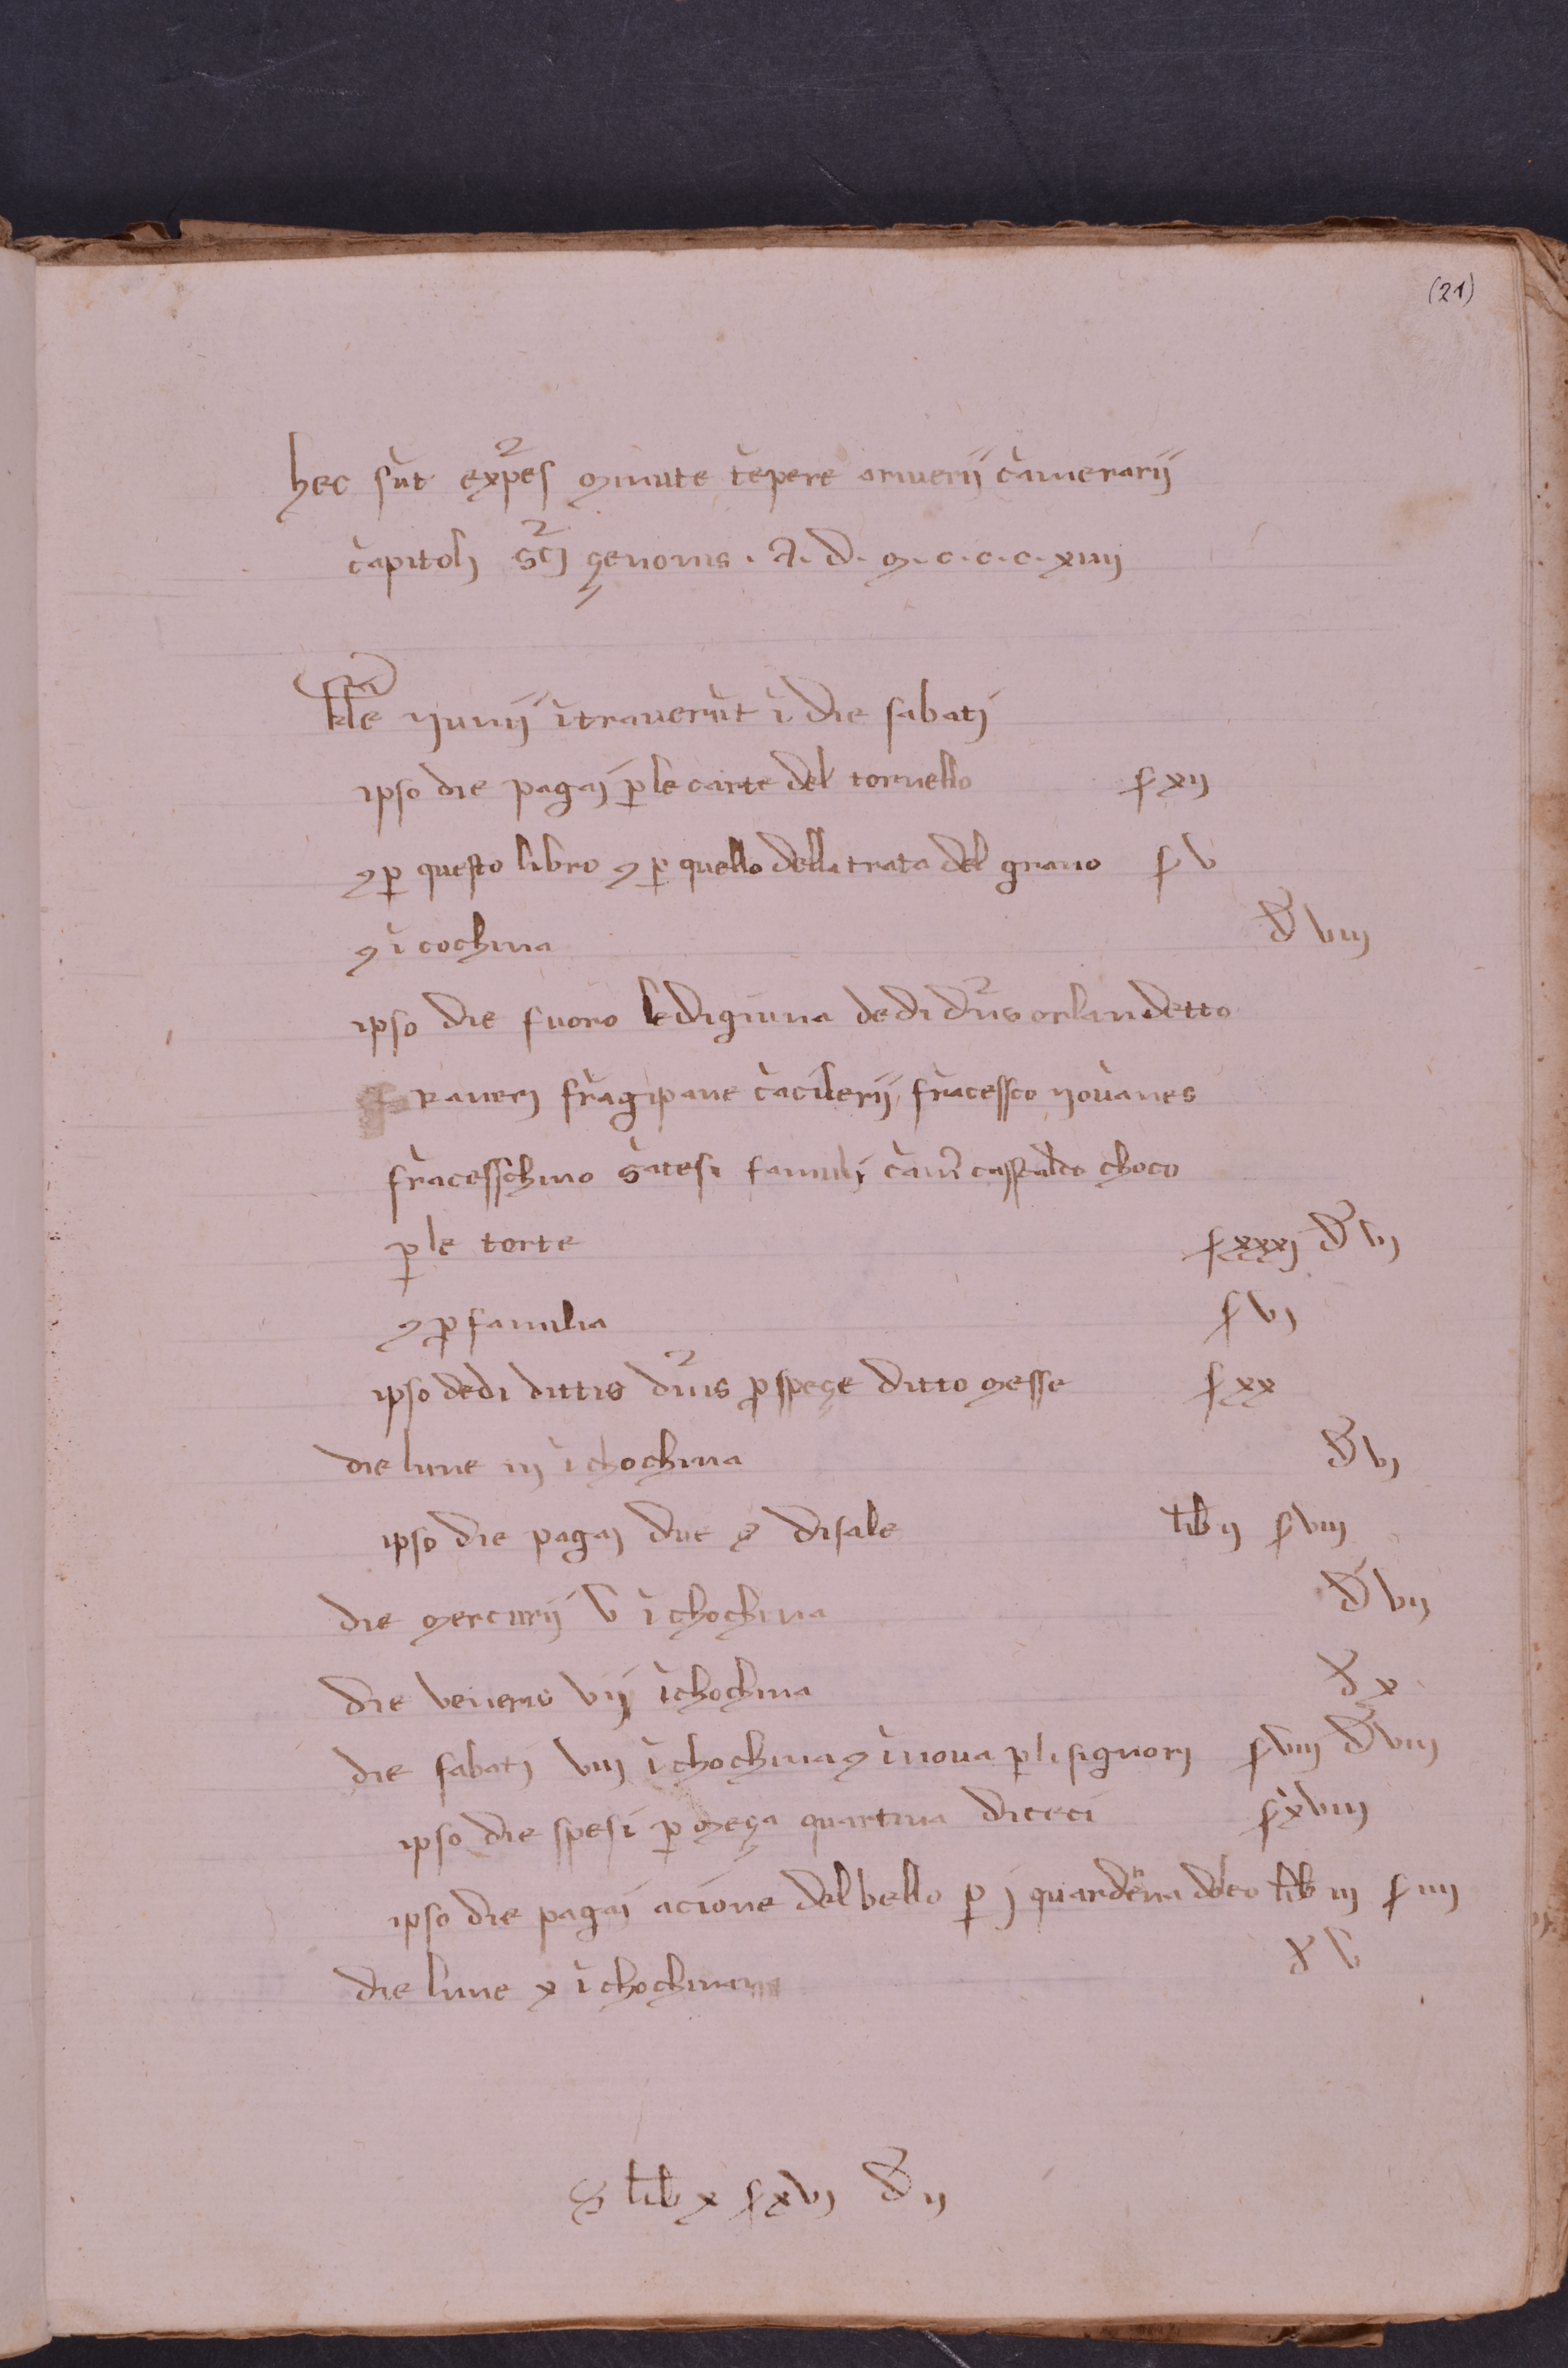 (21)
hec sūt exp̄es minute tēpere armerij cāmerarij
cāpitolj sc̄j çenonis . A . d . m . c . c . c . xiiij
kl̄e yunij ītraverūt ī die sabatj
ipso die pagaj p̄ le carte del tornello ſ xij
⁊ p̄ questo libro ⁊ p̄ quello della trata del grano ſ v
⁊ ī cochina d̄ viij
ipso die fuoro le digiuna dedi dn̄is orlandetto
raneri frāgipane cācilerij frācessco yovanes
frācesschino sātesi famulj cām̄ castaldo choco
p̄ le torte ſ xxxj d̄ vj
⁊ p̄ familia ſ vj
ipso dedi dittis dn̄is p̄ speçe ditto messe ſ xx
die lune iij ī chochina d̄ vj
ipso die pagaj due ⁊ disale lib̄ ij ſ viij
die mercurij v ī chochina d̄ vij
die veneris vij ī chochina d̄ x
die sabatj viij ī chochina ⁊ ī nova p̄ li signorj ſ viij d̄ viij
ipso die spesi p̄ meça quartina di ceci ſ xviij
ipso die pagaj acione del bello p̄ j quardēna dolco lib̄ iij ſ iiij
die lune x ī chochina d̄ v
S lib̄ x ſ xvj d̄ ij